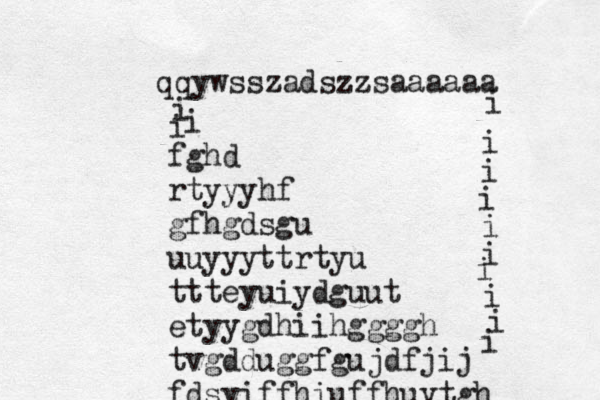 qqywsszadszzsaaaaaa
i i
i i
i
fghd i
i
rtyyyhf i
gfhgdsgu i
uuyyyttrtyu i
i
ttteyuiydguut i
etyygdhiihggggh i
i
tvgdduggfgujdfjij